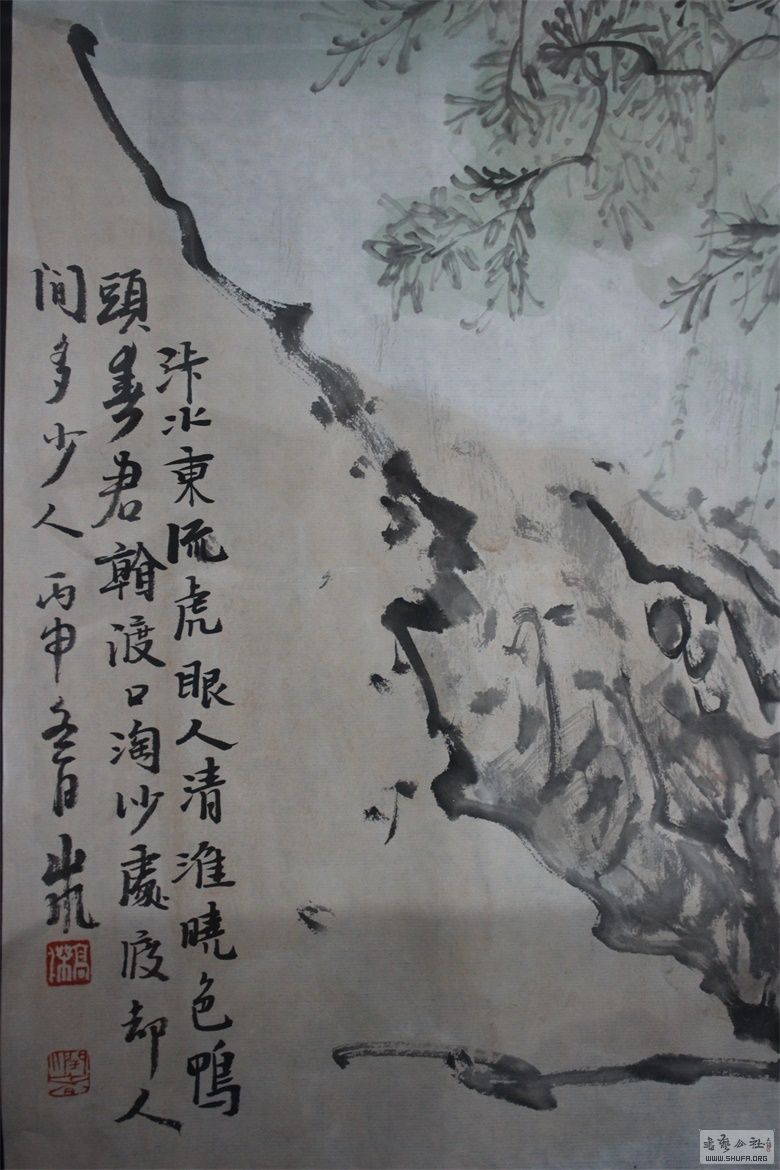 汴水東流虎眼人清淮曉色鴨
頭春君看渡口淘沙處度却人
間多少人 丙申冬日
书艺公社
WWW.SHUFA.ORG